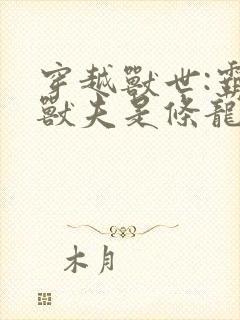 穿越獸世:霸
獸夫是條龍
木月